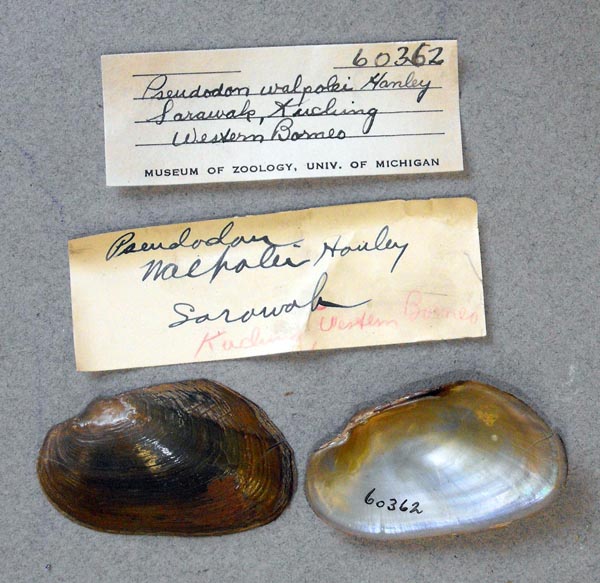 60362
Pseudodon walpolei Hanley
Sarawak, Kuching
Western Borneo
MUSEUM OF ZOOLOGY, UNIV. OF MICHIGAN
Pseudodon
Walpolei Hanley
Sarawak
Kuching, Western Borneo
60362